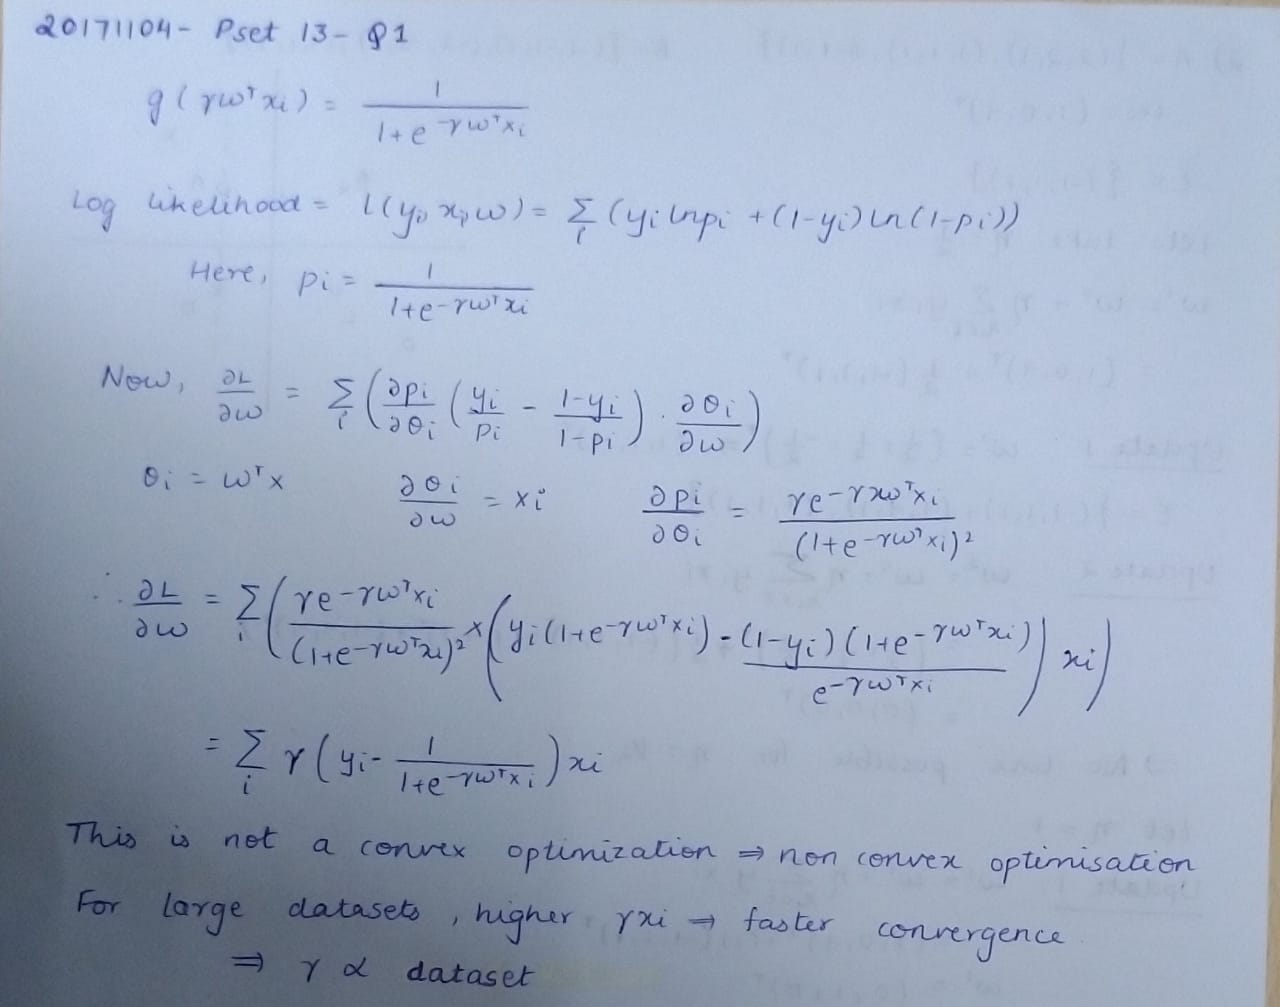 20171104 - Pset 13 - Q1
g(γwᵀxi) = 1 / (1+e^-γwᵀxi)
Log likelihood = L(yi, xi, w) = Σi (yi lnpi + (1-yi) ln(1-pi))
Here, pi = 1 / (1+e^-γwᵀxi)
Now, ∂L/∂w = Σi (∂pi/∂θi (yi/pi - (1-yi)/(1-pi)) . ∂θi/∂w)
θi = wᵀx ∂θi/∂w = xi ∂pi/∂θi = γe^-γxwᵀxi / (1+e^-γwᵀxi)²
∴ ∂L/∂w = Σi (γe^-γwᵀxi / (1+e^-γwᵀxi)² × (yi(1+e^-γwᵀxi) - (1-yi)(1+e^-γwᵀxi) / e^-γwᵀxi) xi)
= Σi γ(yi - 1 / (1+e^-γwᵀxi)) xi
This is not a convex optimization ⇒ non convex optimisation
For large datasets, higher γxi ⇒ faster convergence
⇒ γ α dataset